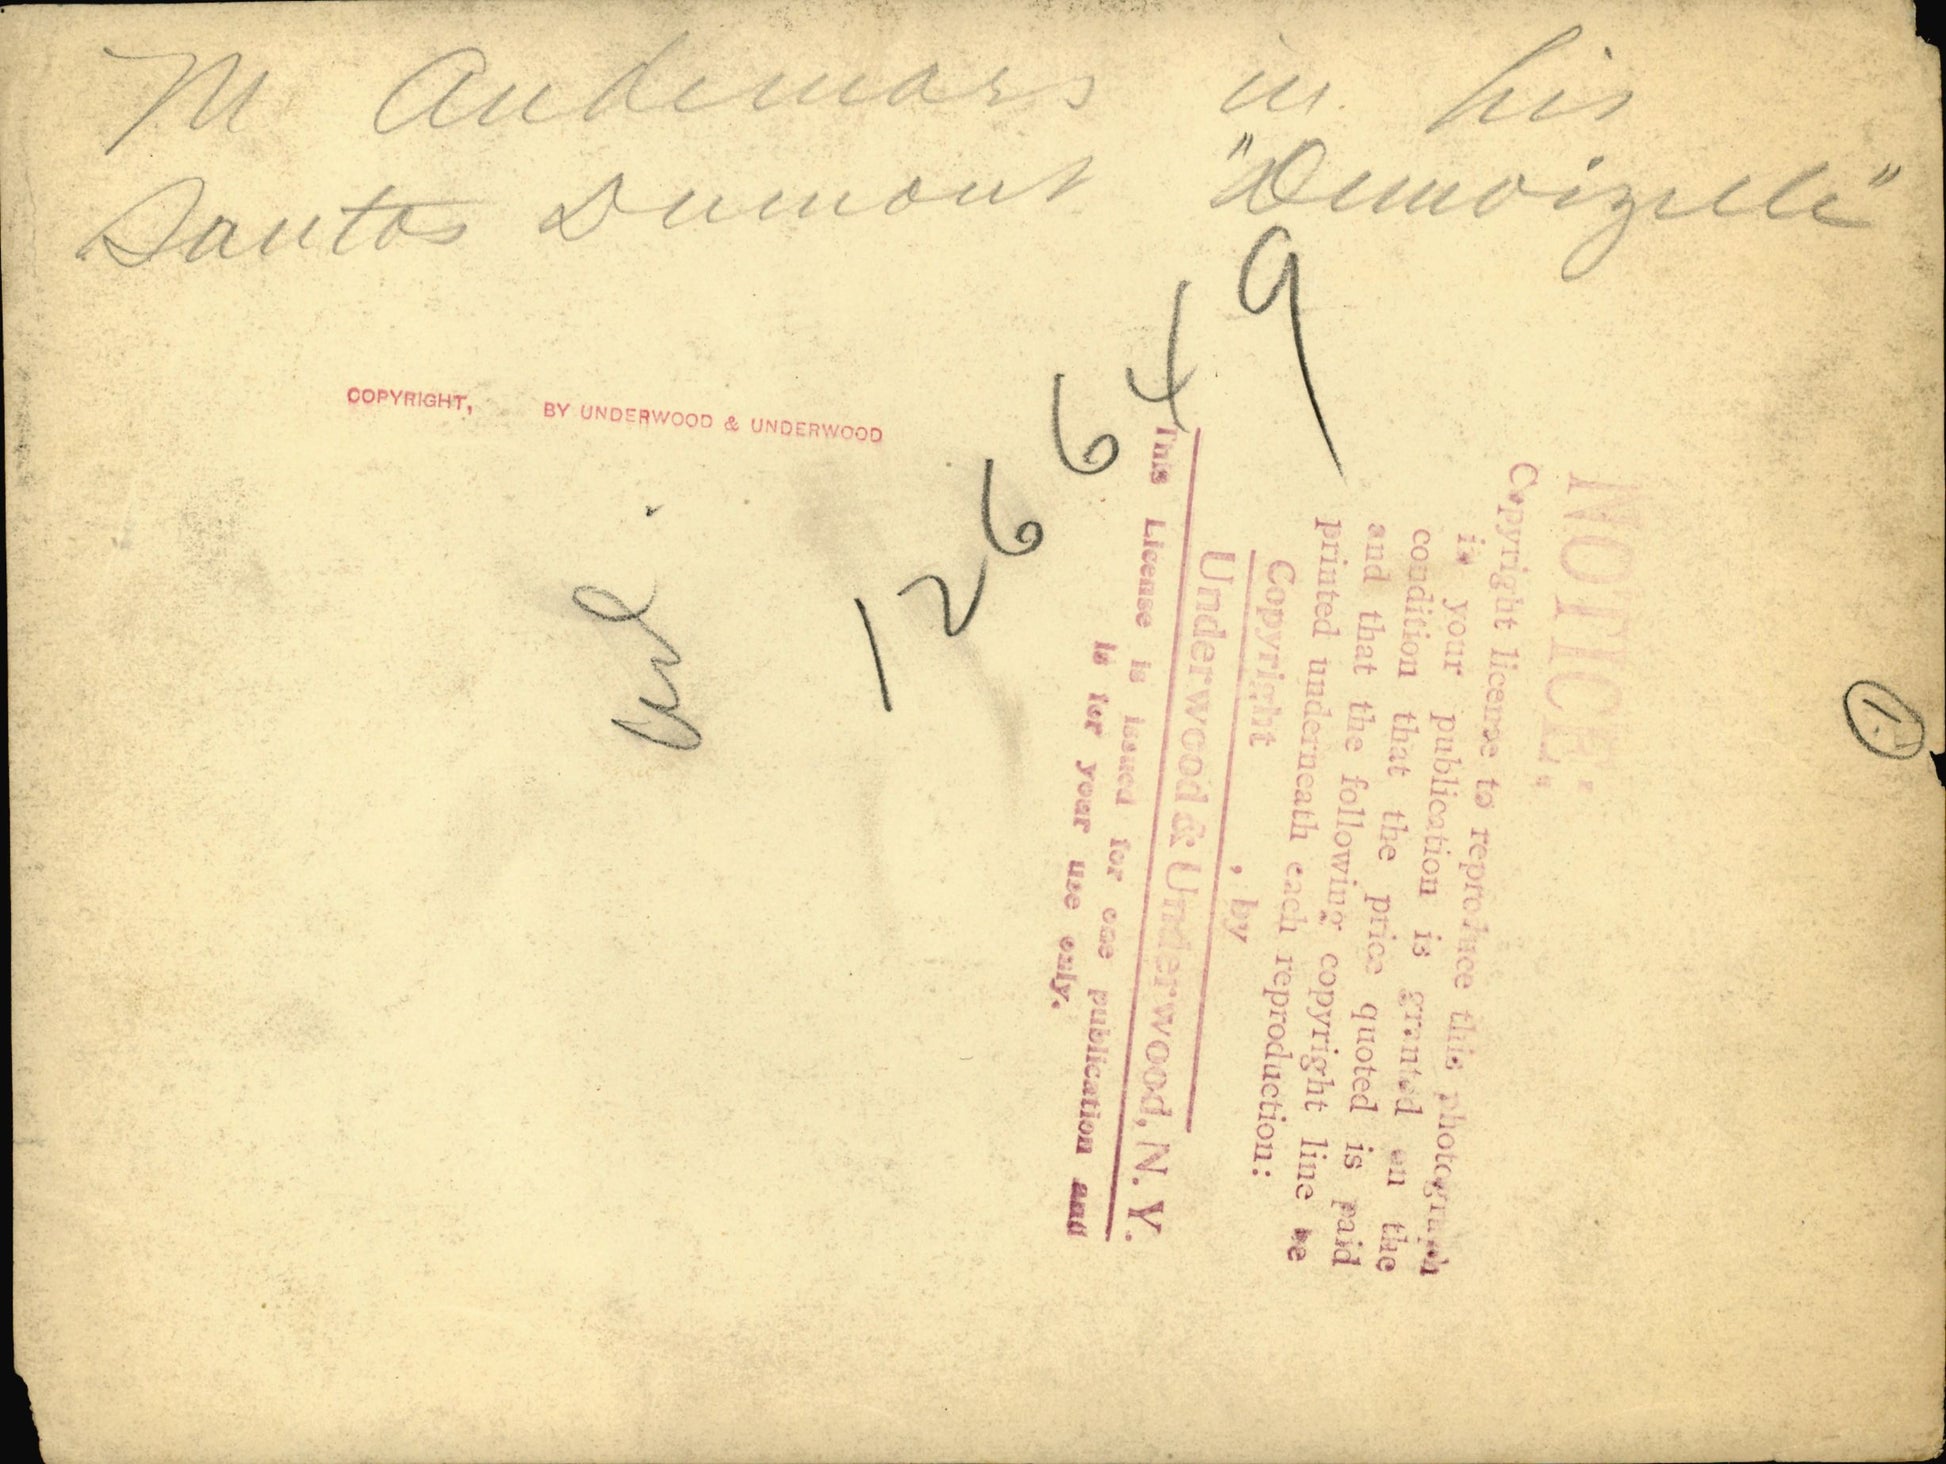 M Audemars in his
Santos Dumont "Demoizelle"
COPYRIGHT, BY UNDERWOOD & UNDERWOOD
126649
NOTICE:
Copyright license to reproduce this photograph
in your publication is granted on the
condition that the price quoted is paid
and that the following copyright line be
printed underneath each reproduction:
Copyright , by
Underwood & Underwood, N. Y.
This License is issued for one publication and
is for your use only.
1.